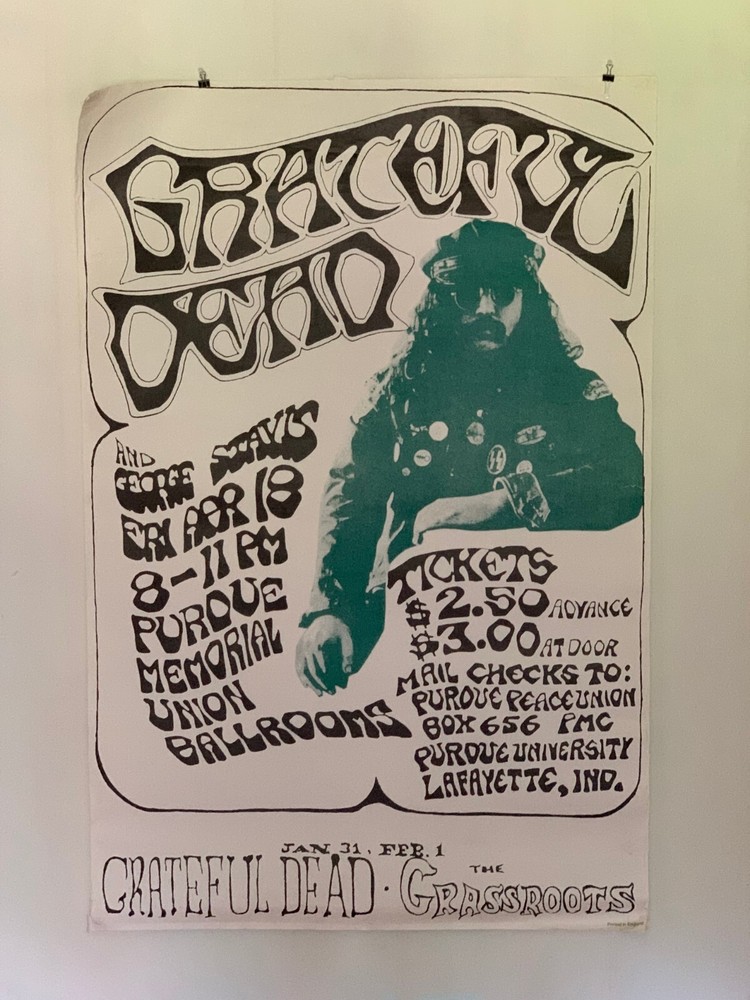 GRATEFUL
DEAD
AND
GEORGE STAVIS
FRI APR 18
8-11 PM
PURDUE
MEMORIAL
UNION
BALLROOMS
TICKETS
$2.50 ADVANCE
$3.00 AT DOOR
MAIL CHECKS TO:
PURDUE PEACE UNION
BOX 656 PMC
PURDUE UNIVERSITY
LAFAYETTE, IND.
JAN. 31, FEB. 1
GRATEFUL DEAD · THE GRASSROOTS